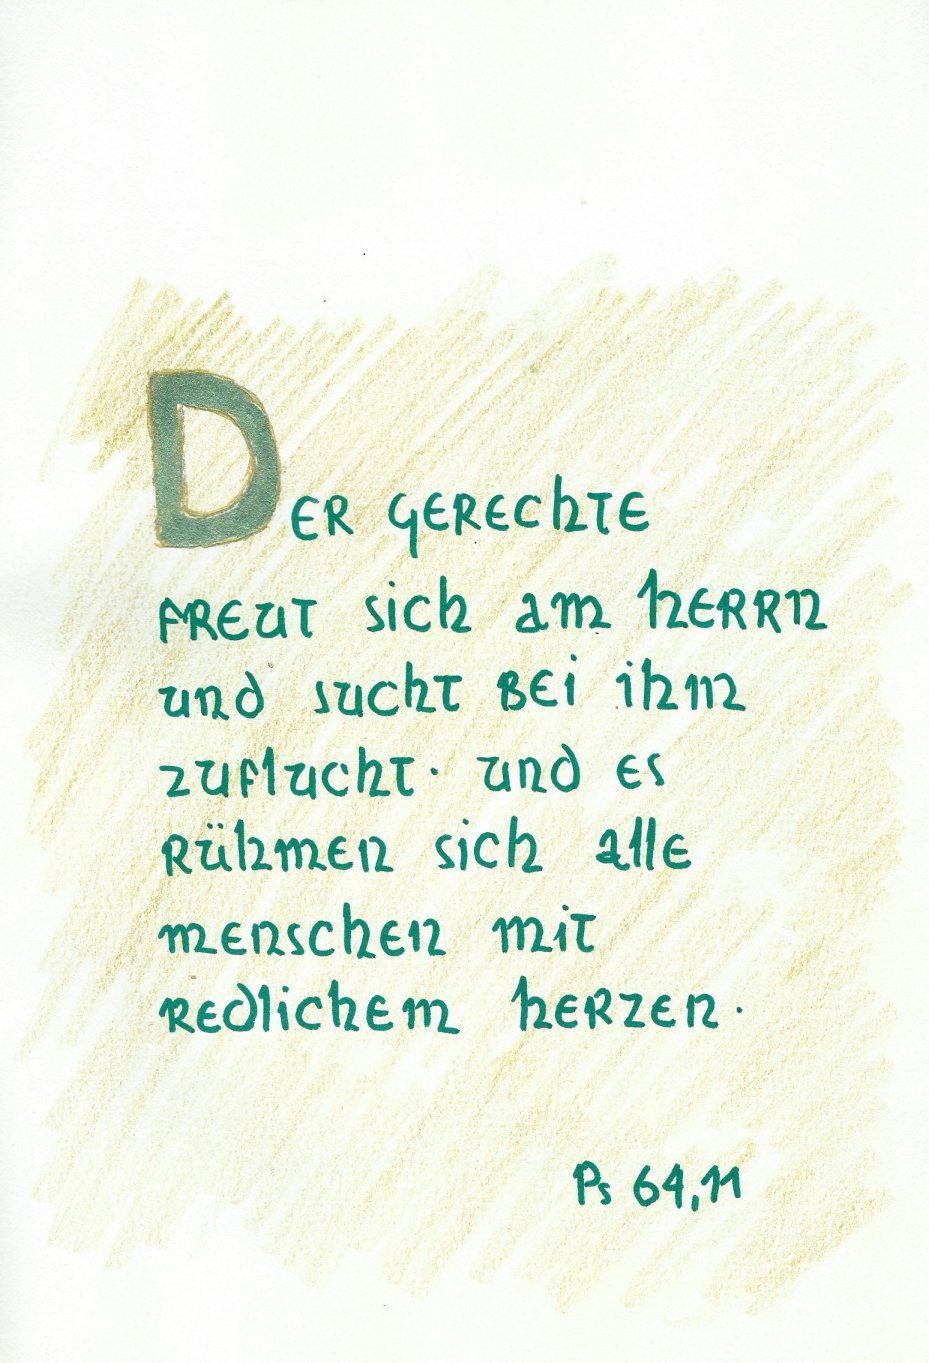 Der gerechte
freut sich am herrn
und sucht bei ihm
zuflucht· und es
rühmen sich alle
menschen mit
redlichem herzen·
Ps 64,11